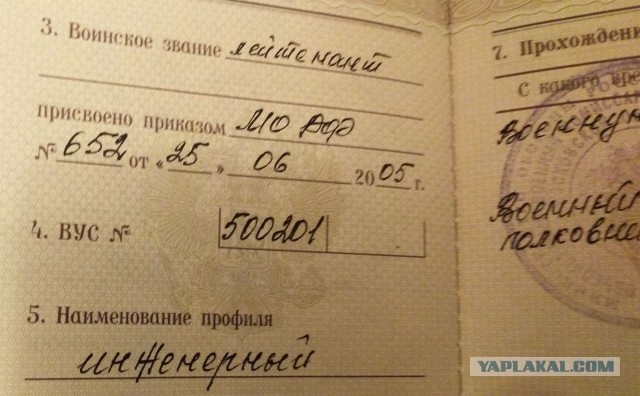 3. Воинское звание лейтенант
присвоено приказом МО РФ
№ 652 от «25» 06 2005 г.
4. ВУС № 500201
5. Наименование профиля
инженерный
7. Прохождени
С какого вре
Военную
Военный
полковни
YAPLAKAL.COM